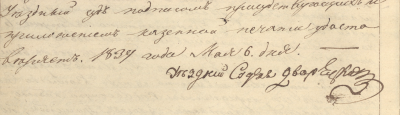 Уездный судъ подписомъ присудствующихъ и
приложениемъ казенной печати удосто
веряетъ. 1837 года Мая 6. дня.
Уездний Судья